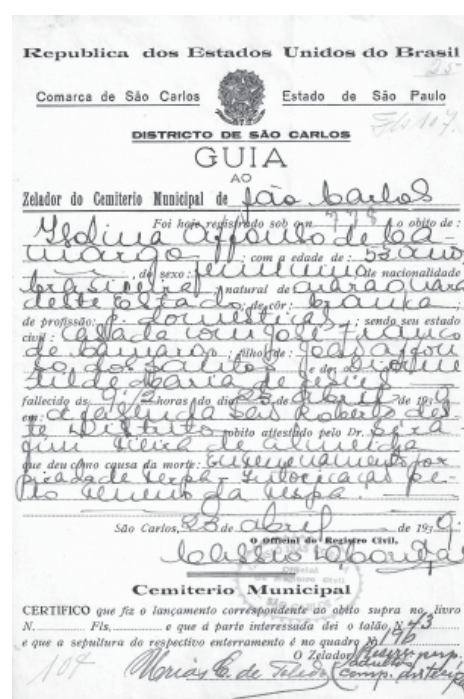 Republica dos Estados Unidos do Brasil
25
Comarca de São Carlos Estado de São Paulo
Fls 107.
DISTRICTO DE SÃO CARLOS
GUIA
AO
Zelador do Cemiterio Municipal de São Carlos
Foi hoje registrado sob o n. 778 o obito de:
Isolina Affonso de Ca-
margo ; com a edade de: 53 anos,
do sexo: feminino de nacionalidade
brasileira natural de Araraquara
deste Estado de côr: branca;
de profissão: domesticas, sendo seu estado
civil: casada com José Franco
de Camargo ; filho de João Affon-
so dos Santos e de
Maria de Jesus
fallecido ás 9 1/2 horas do dia 23 de abril de 1939
em: Roberto des-
te Districto obito attestado pelo Dr. Sera-
phim Vieira de Almeida
que deu como causa da morte: Envenenamento por
picada de vespa - Intoxicação pe-
lo veneno da vespa.
São Carlos, 23 de abril de 1939.
O Official do Registro Civil,
Cemiterio Municipal
CERTIFICO que fiz o lançamento correspondente ao obito supra no livro
N. Fls. e que á parte interessada dei o talão N. 43
e que a sepultura do respectivo enterramento é no quadro Nº 196
O Zelador
104 de Toledo